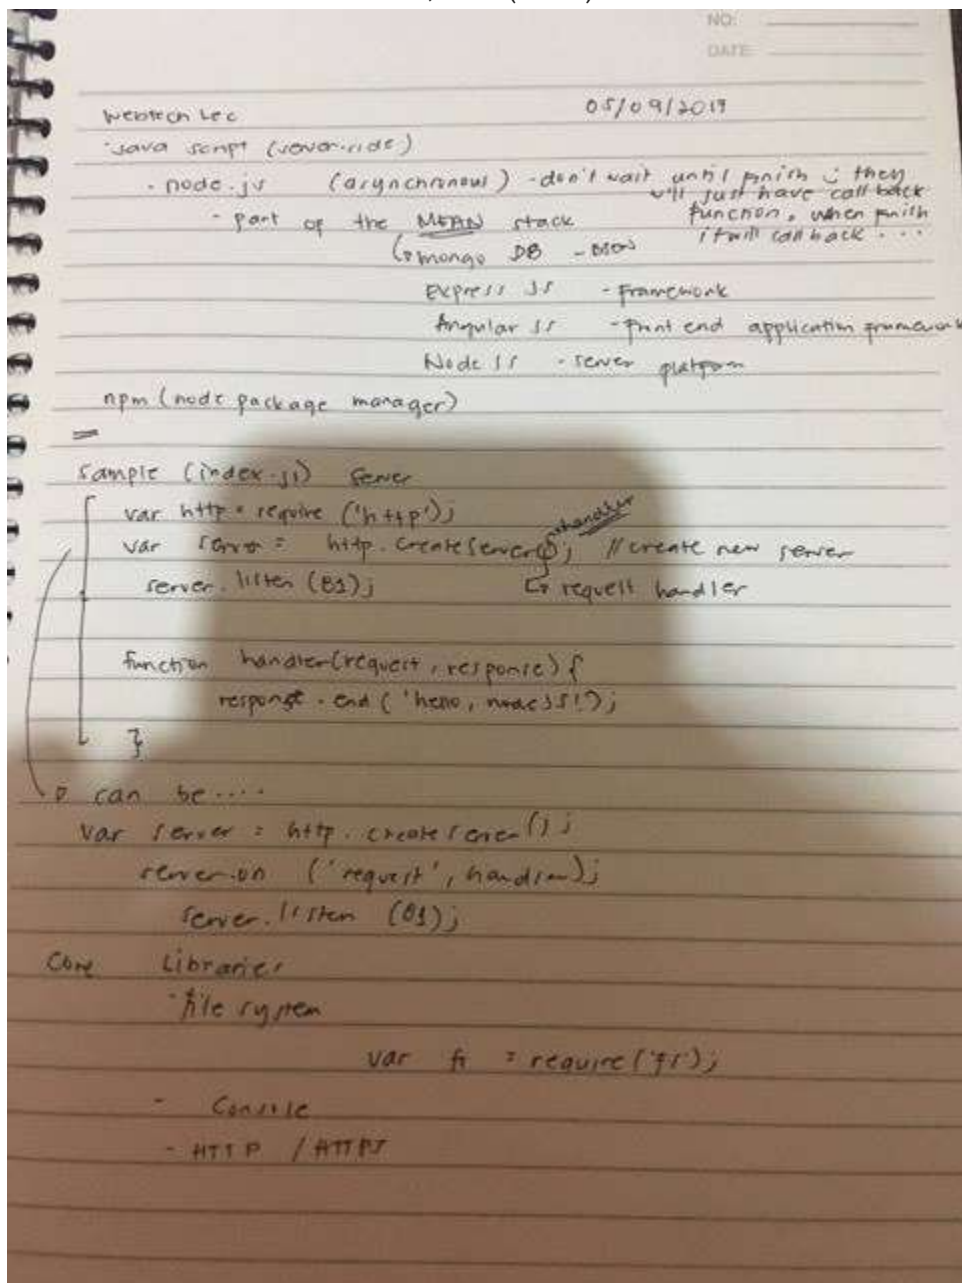 NO:
DATE:
Webtech Lec 05/09/2019
Java script (server-side)
- node.js (asynchronous) - don't wait until finish ; they
will just have call back
- part of the MEAN stack function, when finish
it will call back ...
mongo DB - BSON
Express JS - Framework
Angular JS - front end application framework
Node JS - server platform
npm (node package manager)
sample (index.js) server
var http = require ('http');
handler
var server = http.createServer(); // create new server
server.listen (81); request handler
function handler(request, response) {
response.end ('hello, nodeJS!');
}
can be ....
var server = http.createServer();
server.on ('request', handler);
server.listen (81);
Core Libraries
- file system
var fs = require('fs');
- Console
- HTTP / HTTPS